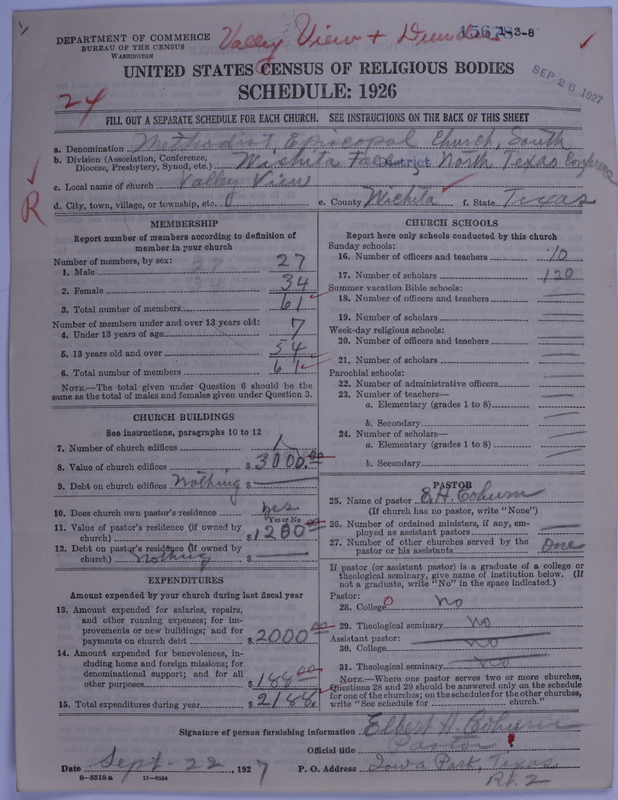 DEPARTMENT OF COMMERCE
BUREAU OF THE CENSUS
WASHINGTON
Valley View + Dundee
1-3-8
UNITED STATES CENSUS OF RELIGIOUS BODIES
SEP 26 1927
SCHEDULE: 1926
24
FILL OUT A SEPARATE SCHEDULE FOR EACH CHURCH. SEE INSTRUCTIONS ON THE BACK OF THIS SHEET
a. Denomination Methodist Episcopal Church, South
b. Division (Association, Conference, Diocese, Presbytery, Synod, etc.) Wichita Falls District North Texas Conference
c. Local name of church Valley View
d. City, town, village, or township, etc. e. County Wichita f. State Texas
R
MEMBERSHIP
Report number of members according to definition of member in your church
Number of members, by sex:
1. Male 27
2. Female 34
3. Total number of members 61
Number of members under and over 13 years old:
4. Under 13 years of age 7
5. 13 years old and over 54
6. Total number of members 61
NOTE.—The total given under Question 6 should be the same as the total of males and females given under Question 3.
CHURCH BUILDINGS
See instructions, paragraphs 10 to 12
7. Number of church edifices 1
8. Value of church edifices $3000.00
9. Debt on church edifices Nothing $
10. Does church own pastor's residence yes
Yes or No
11. Value of pastor's residence (if owned by church) $1200.00
12. Debt on pastor's residence (if owned by church) Nothing $
EXPENDITURES
Amount expended by your church during last fiscal year
13. Amount expended for salaries, repairs, and other running expenses; for improvements or new buildings; and for payments on church debt $2000.00
14. Amount expended for benevolences, including home and foreign missions; for denominational support; and for all other purposes $188.00
15. Total expenditures during year $2188.
CHURCH SCHOOLS
Report here only schools conducted by this church
Sunday schools:
16. Number of officers and teachers 10
17. Number of scholars 120
Summer vacation Bible schools:
18. Number of officers and teachers
19. Number of scholars
Week-day religious schools:
20. Number of officers and teachers
21. Number of scholars
Parochial schools:
22. Number of administrative officers
23. Number of teachers—
a. Elementary (grades 1 to 8)
b. Secondary
24. Number of scholars—
a. Elementary (grades 1 to 8)
b. Secondary
PASTOR
25. Name of pastor E.H. Coburn
(If church has no pastor, write "None")
26. Number of ordained ministers, if any, employed as assistant pastors
27. Number of other churches served by the pastor or his assistants One
If pastor (or assistant pastor) is a graduate of a college or theological seminary, give name of institution below. (If not a graduate, write "No" in the space indicated.)
Pastor:
28. College No
29. Theological seminary No
Assistant pastor:
30. College No
31. Theological seminary No
NOTE.—Where one pastor serves two or more churches, Questions 28 and 29 should be answered only on the schedule for one of the churches; on the schedules for the other churches, write "See schedule for church."
Signature of person furnishing information Elbert H. Coburn
Official title Pastor
Date Sept-22, 1927 P. O. Address Iowa Park, Texas
Rt. 2
8-5519a 11-9084